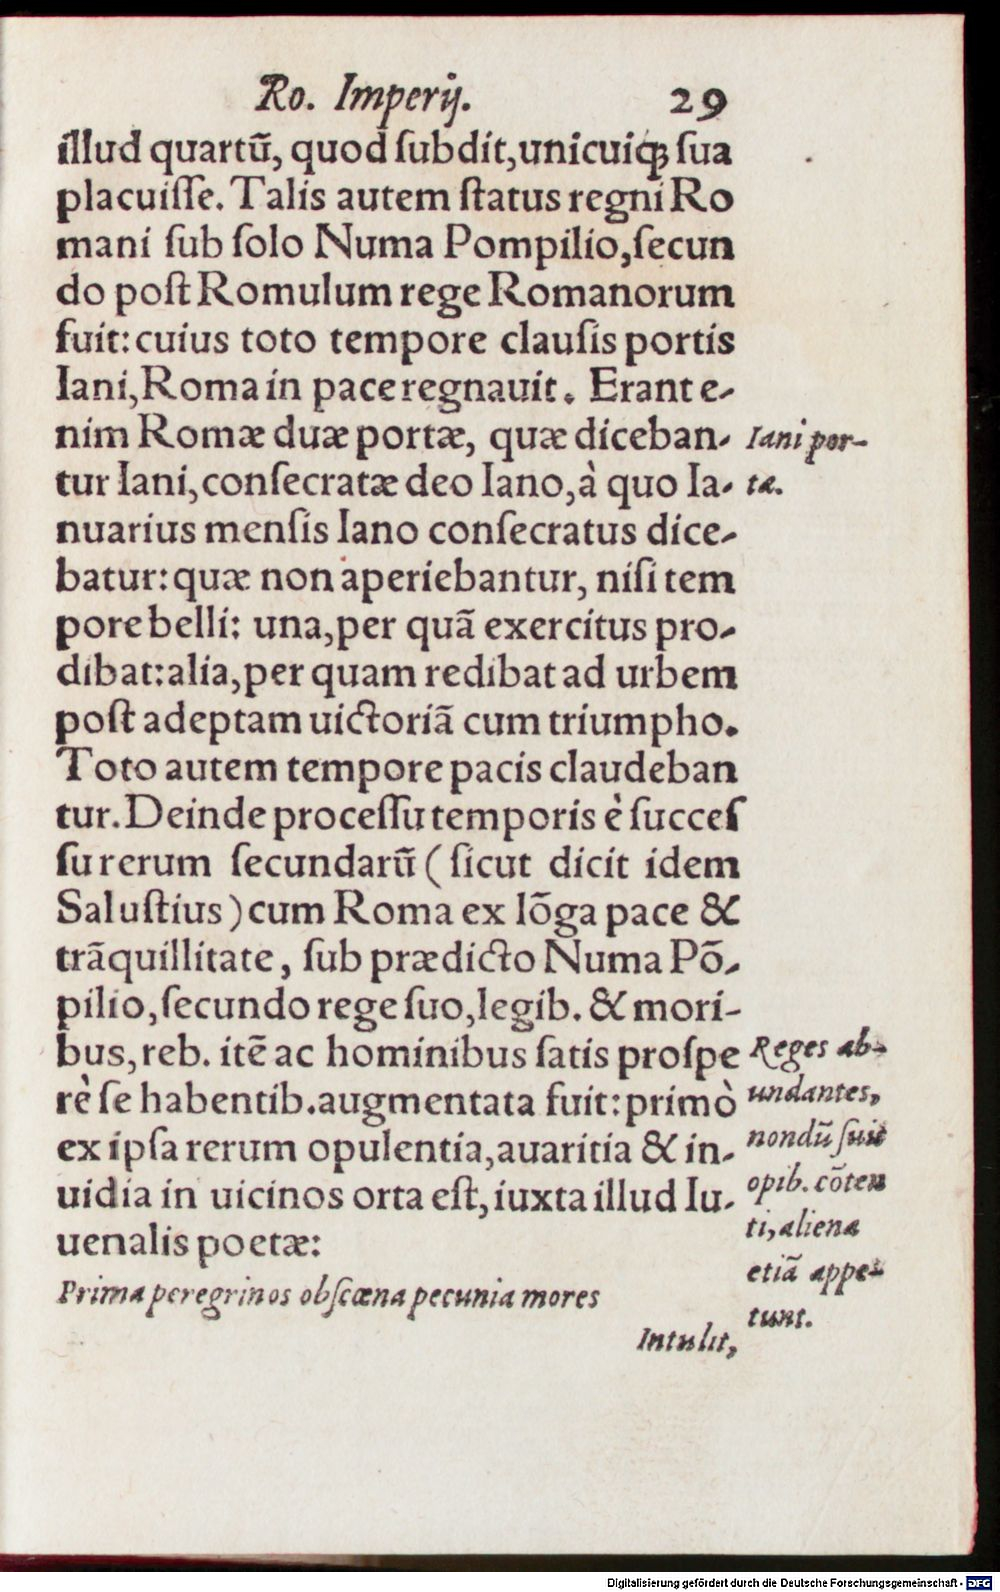 Ro. Imperij. 29
illud quartũ, quod ſubdit, unicuiq; ſua
placuiſſe. Talis autem ſtatus regni Ro
mani ſub ſolo Numa Pompilio, ſecun
do poſt Romulum rege Romanorum
fuit: cuius toto tempore clauſis portis
Iani, Roma in pace regnauit. Erant e-
nim Romæ duæ portæ, quæ diceban-
tur Iani, conſecratæ deo Iano, à quo Ia-
nuarius menſis Iano conſecratus dice-
batur: quæ non aperiebantur, niſi tem
pore belli: una, per quã exercitus pro-
dibat: alia, per quam redibat ad urbem
poſt adeptam uictoriã cum triumpho.
Toto autem tempore pacis claudeban
tur. Deinde proceſſu temporis è ſucceſ
ſu rerum ſecundarũ (ſicut dicit idem
Saluſtius) cum Roma ex lõga pace &
trãquillitate, ſub prædicto Numa Põ-
pilio, ſecundo rege ſuo, legib. & mori-
bus, reb. itẽ ac hominibus ſatis proſpe
rè ſe habentib. augmentata fuit: primò
ex ipſa rerum opulentia, auaritia & in-
uidia in uicinos orta eſt, iuxta illud Iu-
uenalis poetæ:
Prima peregrinos obſcœna pecunia mores
Intulit,
Iani por-
tæ.
Reges ab-
undantes,
nondũ ſuis
opib. cõten
ti, aliena
etiã appe-
tunt.
Digitalisierung gefördert durch die Deutsche Forschungsgemeinschaft - DFG